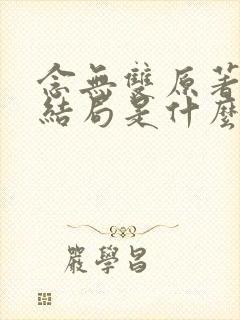 念無雙原著
結局是什麼
嚴學昌